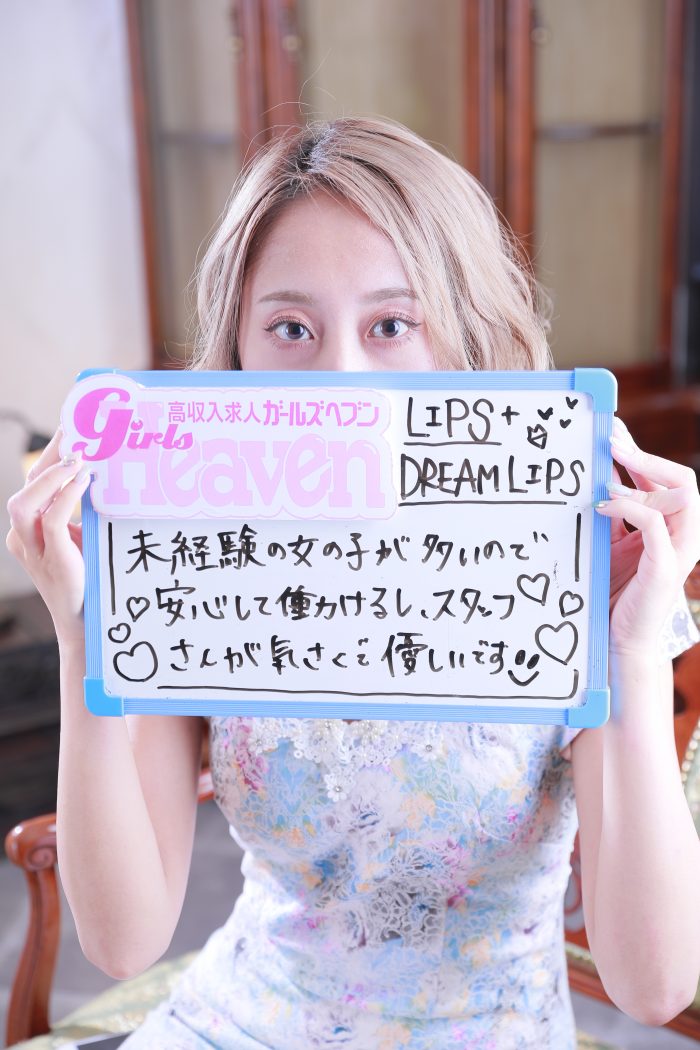 高収入求人ガールズヘブン
Girls
Heaven
LIPS+
DREAM LIPS
未経験の女の子が多いので
安心して働かけるし、スタッフ
さんが気さくで優しいです